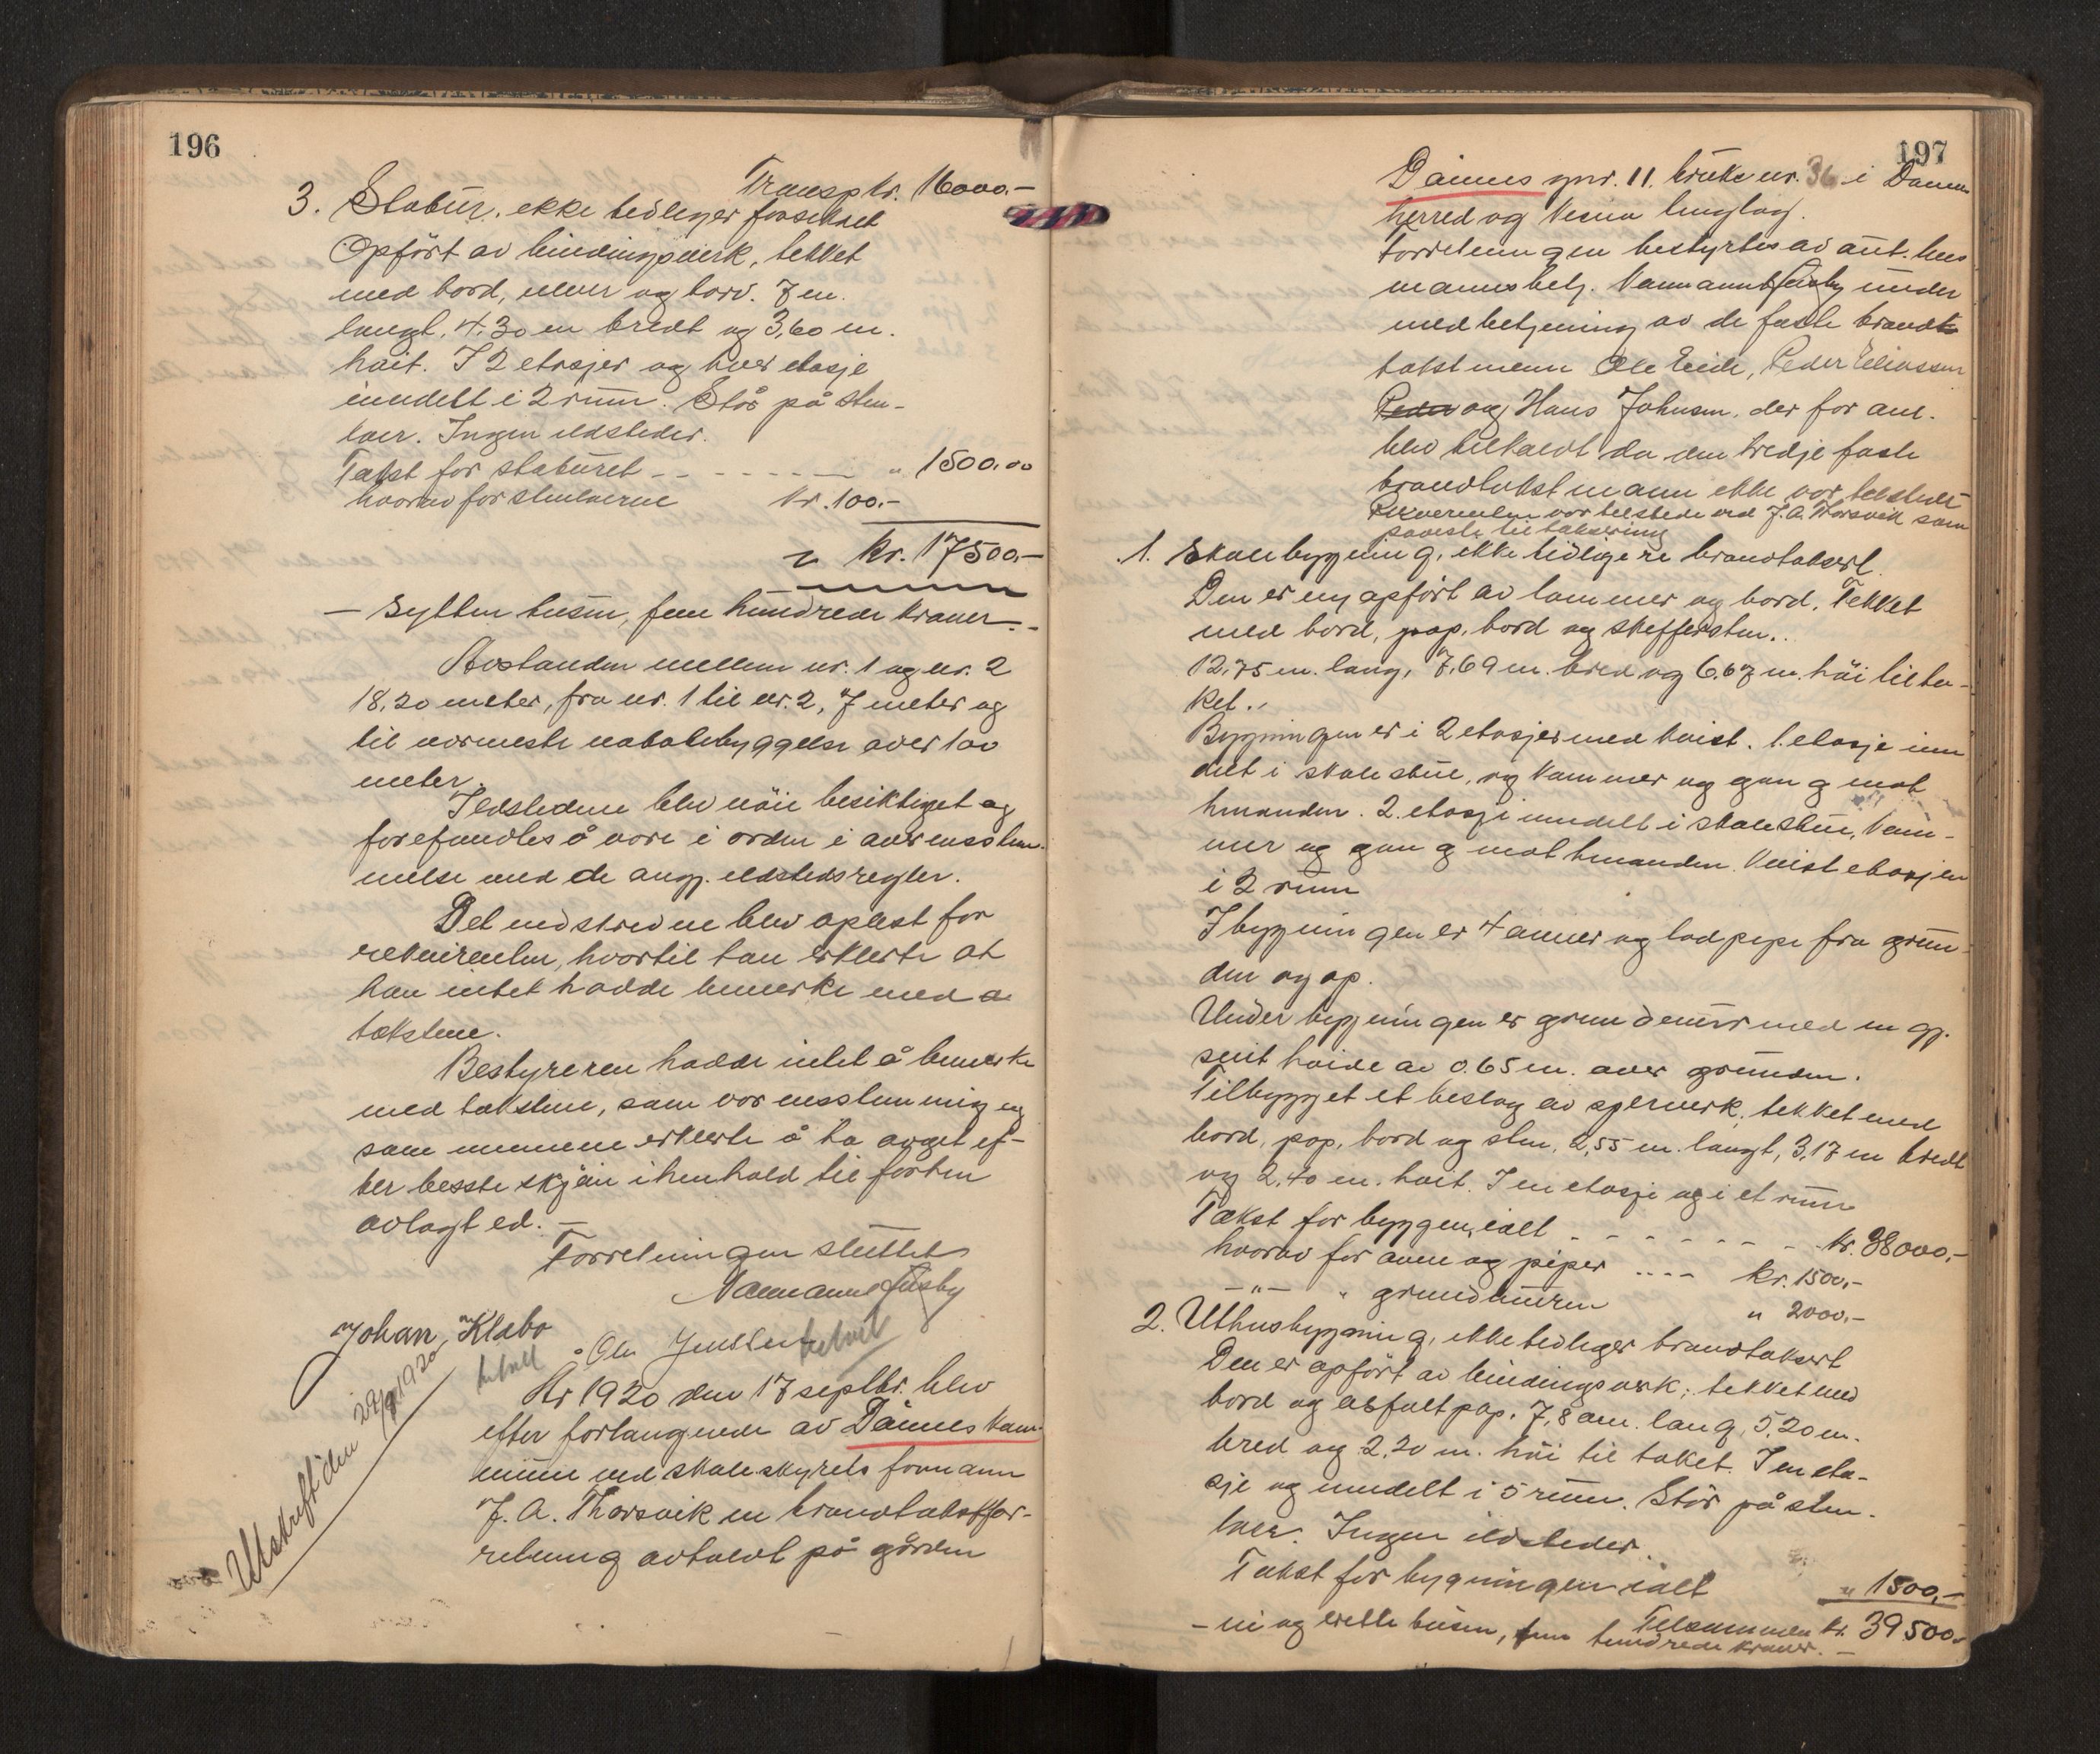 196
Transp kr. 16000.-
3. Stabur, ikke tidliger forsikret
Opført av bindingsverk, tekket
med bord, never og torv. 7 m.
langt, 4.30 m bredt og 3,60 m.
høit. I 2 etasjer og hver etasje
inndelt i 2 rum. Står på sten-
laer. Ingen ildsteder.
Takst for staburet - - - - - - " 1500.00
hvorav for stenlaerne kr. 100.-
kr. 17500.-
- Sytten tusen, fem hundrede kroner. -
Avstanden mellem nr. 1 og nr. 2
18.20 meter, fra nr. 1 til nr. 2, 7 meter og
til nærmeste nabobebyggelse over 100
meter.
Ildstedene blev nöie besiktiget og
forefandtes å være i orden i overensstem-
melse med de angj. ildstedsregler.
Det nedskrevne blev oplest for
rekvirenten, hvortil han erklerte at
han intet hadde bemerke med a
takstene.
Bestyreren hadde intet å bemerke
med takstene, som var ensstemmig og
som mennene erklerte å ha avgit ef-
ter besste skjön i henhold til forten
avlagt ed. -
Forretningen sluttet
Normann Husby
Johan Klabo
betalt
Ole Jenssen betalt
Utskrift den 29/9 1920
År 1920 den 17 septbr. blev
efter forlangende av Dönnes kom-
mune ved skolestyrets formann
J. A. Thorsvik en brandtakstfor-
retning avholdt på gården
197
Dönnes gnr. 11. bruks nr. 36 i Dönnes
herred og Nesna tinglag.
Forretningen bestyrtes av aut. lens
mannsbetj. Normann Husby under
medbetjening av de faste brandt
takstmenn Ole Eide, Peder Eliassen
Peder og Hans Johnsen, der for anl.
blev tilkaldt da den tredje faste
brandtakstmann ikke var tilstede
Rekvirenten var tilstede ved J. A. Thorsvik som
påviste til taksering
1. Skolebygning, ikke tidligere brandtaksert.
Den er ny opført av tømmer og bord. Tekket
med bord, pap, bord og skeffersten.
12,75 m. lang, 7,69 m. bred og 6.67 m. höi til ta-
ket.
Bygningen er i 2 etasjer med kvist. 1. etasje inn
delt i skolestue, og kammer og gang mot
hinanden. 2. etasje inndelt i skolestue, kam-
mer og gang mot hinanden. Kvistetasjen
i 2 rum
I bygningen er 4 ovner og lodpipe fra grun-
den og op.
Under bygningen er grundmur med en gj.
snit höide av 0.65 m. over grunden.
Tilbygget et beslag av sperverk, tekket med
bord, pap, bord og sten, 2,55 m. langt, 3.17 m bredt
og 2,40 m. höit. I en etasje og i et rum
Takst for byggen, ialt - - - - - - kr. 38000.-
hvorav for ovne og piper .... kr. 1500.-
-"- " grundmuren " 2000.-
2. Uthusbygning, ikke tidliger brandtaksert
Den er opført av bindingsverk; tekket med
bord og asfaltpap. 7,80 m. lang, 5,20 m.
bred og 2,20 m. höi til taket. I en eta-
sje og inndelt i 5 rum. Står på sten-
laer. Ingen ildsteder.
Takst for bygningen ialt " 1500.-
Tilsammen kr. 39500.-
- ni og tretti tusen, fem hundrede kroner. -